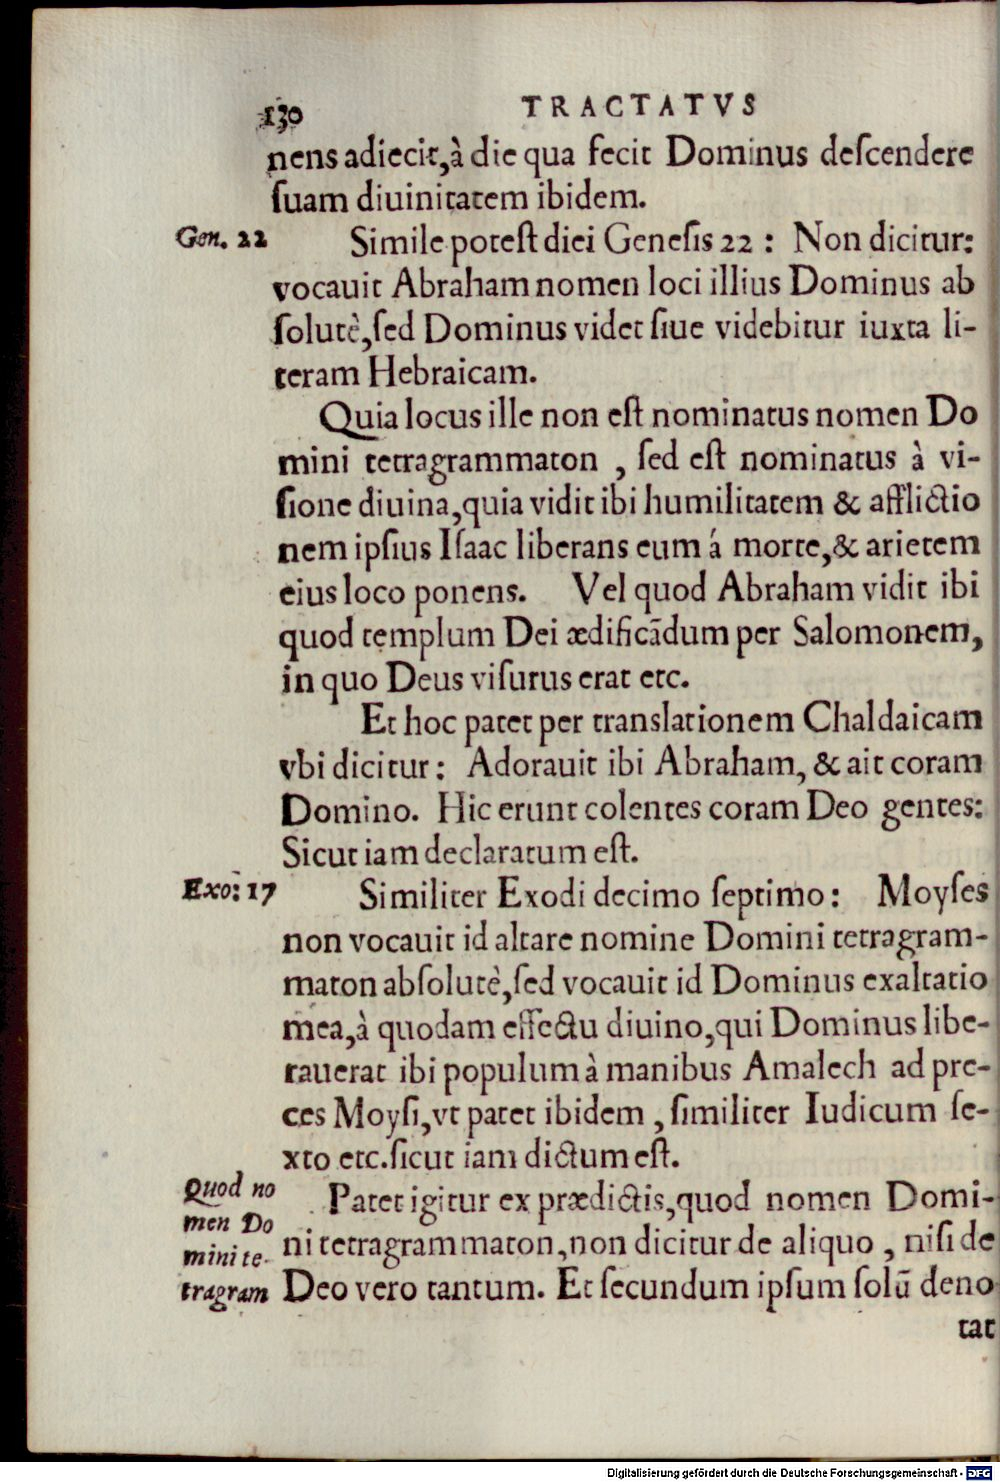 130 TRACTATVS
nens adiecit,à die qua fecit Dominus deſcendere
ſuam diuinitatem ibidem.
Gen. 22 Simile poteſt dici Geneſis 22 : Non dicitur:
vocauit Abraham nomen loci illius Dominus ab
ſolutè,ſed Dominus videt ſiue videbitur iuxta li-
teram Hebraicam.
Quia locus ille non eſt nominatus nomen Do
mini tetragrammaton , ſed eſt nominatus à vi-
ſione diuina,quia vidit ibi humilitatem & afflictio
nem ipſius Iſaac liberans eum á morte,& arietem
eius loco ponens. Vel quod Abraham vidit ibi
quod templum Dei ædificãdum per Salomonem,
in quo Deus viſurus erat etc.
Et hoc patet per translationem Chaldaicam
vbi dicitur : Adorauit ibi Abraham, & ait coram
Domino. Hic erunt colentes coram Deo gentes:
Sicut iam declaratum eſt.
Exo: 17 Similiter Exodi decimo ſeptimo : Moyſes
non vocauit id altare nomine Domini tetragram-
maton abſolutè,ſed vocauit id Dominus exaltatio
mea,à quodam effectu diuino,qui Dominus libe-
rauerat ibi populum à manibus Amalech ad pre-
ces Moyſi,vt patet ibidem , ſimiliter Iudicum ſe-
xto etc.ſicut iam dictum eſt.
Quod no Patet igitur ex prædictis,quod nomen Domi-
men Do
mini te- ni tetragrammaton,non dicitur de aliquo , niſi de
tragram Deo vero tantum. Et ſecundum ipſum ſolũ deno
tat
Digitalisierung gefördert durch die Deutsche Forschungsgemeinschaft - DFG